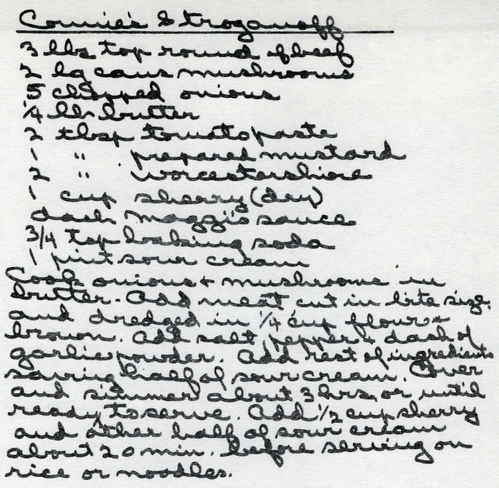 Connie's Stroganoff
3 lbs top round of beef
2 lg cans mushrooms
5 chopped onions
1/4 lb butter
2 tbsp tomato paste
1 " prepared mustard
2 " worcestershire
1 cup sherry (dry)
dash Maggi's sauce
3/4 tsp baking soda
1 pint sour cream
Cook onions + mushrooms in
butter. Add meat, cut in bite size,
and dredged in 1/4 cup flour +
brown. Add salt, pepper + dash of
garlic powder. Add rest of ingredients
saving half of sour cream. Cover
and simmer about 3 hrs, or until
ready to serve. Add 1/2 cup sherry
and other half of sour cream
about 20 min. before serving on
rice or noodles.